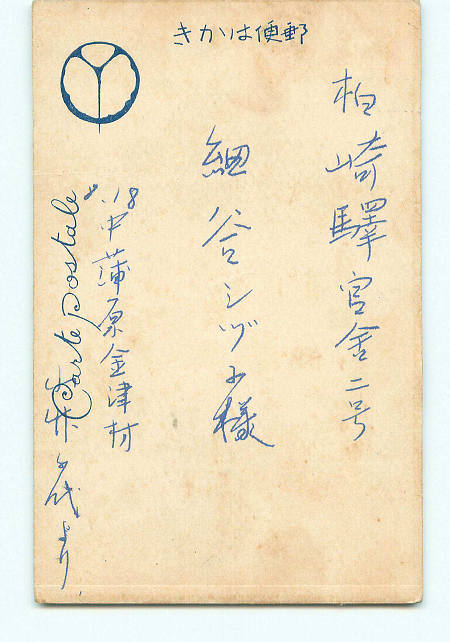 きかは便郵
柏崎驛官舎二号
細谷シヅ子様
8.18
中蒲原金津村
Carte postale
より